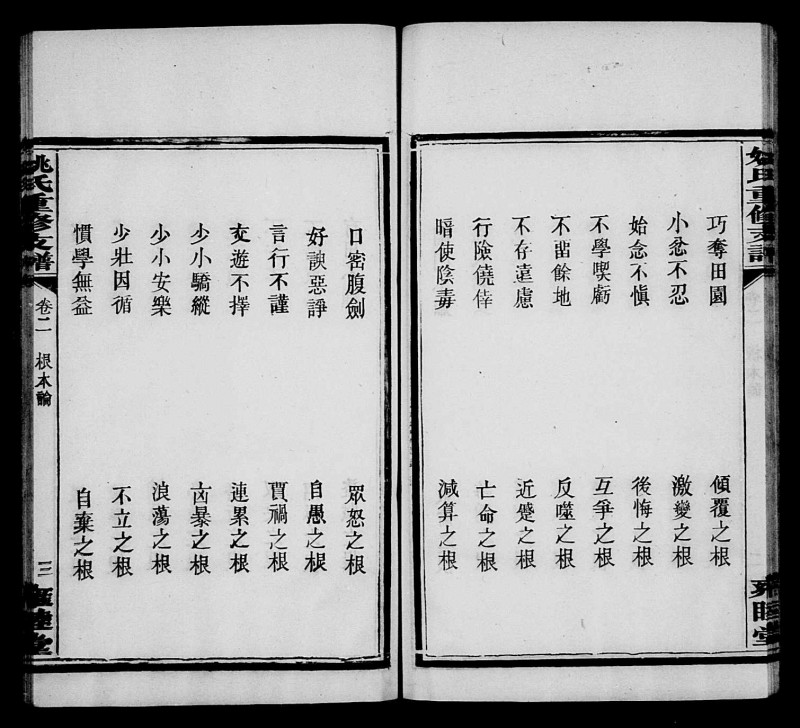 姚氏重修支譜
雍睦堂
巧奪田園 傾覆之根
小忿不忍 激變之根
始念不愼 後悔之根
不學喫虧 互爭之根
不畱餘地 反噬之根
不存遠慮 近蹙之根
行險僥倖 亡命之根
暗使陰毒 減算之根
口密腹劍 眾怒之根
好諛惡諍 自愚之根
言行不謹 賈禍之根
交遊不擇 連累之根
少小驕縱 凶暴之根
少小安樂 浪蕩之根
少壯因循 不立之根
慣學無益 自棄之根
姚氏重修支譜 卷二 根本論 三 雍睦堂